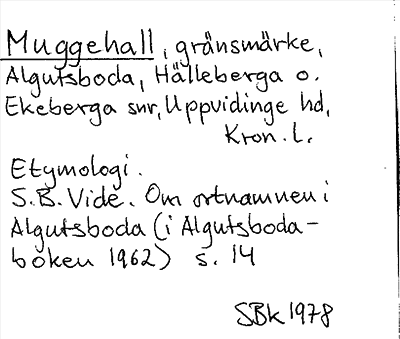 Muggehall, gränsmärke,
Algutsboda, Hälleberga o.
Ekeberga snr, Uppvidinge hd,
Kron. L.
Etymologi.
S.B. Vide. Om ortnamnen i
Algutsboda (i Algutsboda-
boken 1962) s. 14
SBk 1978